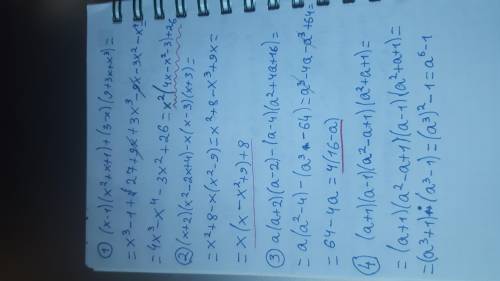 ① (x-1)(x²+x+1)+(3-x)(9+3x+x²)=
= x³-1+27+9x+3x³-9x-3x²-x⁴=
= 4x³-x⁴-3x²+26=x²(4x-x²-3)+26
② (x+2)(x²-2x+4)-x(x-3)(x+3)=
= x²+8-x(x²-9)=x²+8-x³+9x=
= x(x-x²+9)+8
③ a(a+2)(a-2)-(a-4)(a²+4a+16)=
= a(a²-4)-(a³-64)=a³-4a-a³+64=
= 64-4a=4(16-a)
④ (a+1)(a-1)(a²-a+1)(a²+a+1)=
= (a+1)(a²-a+1)(a-1)(a²+a+1)=
= (a³+1)(a³-1)=(a³)²-1=a⁶-1